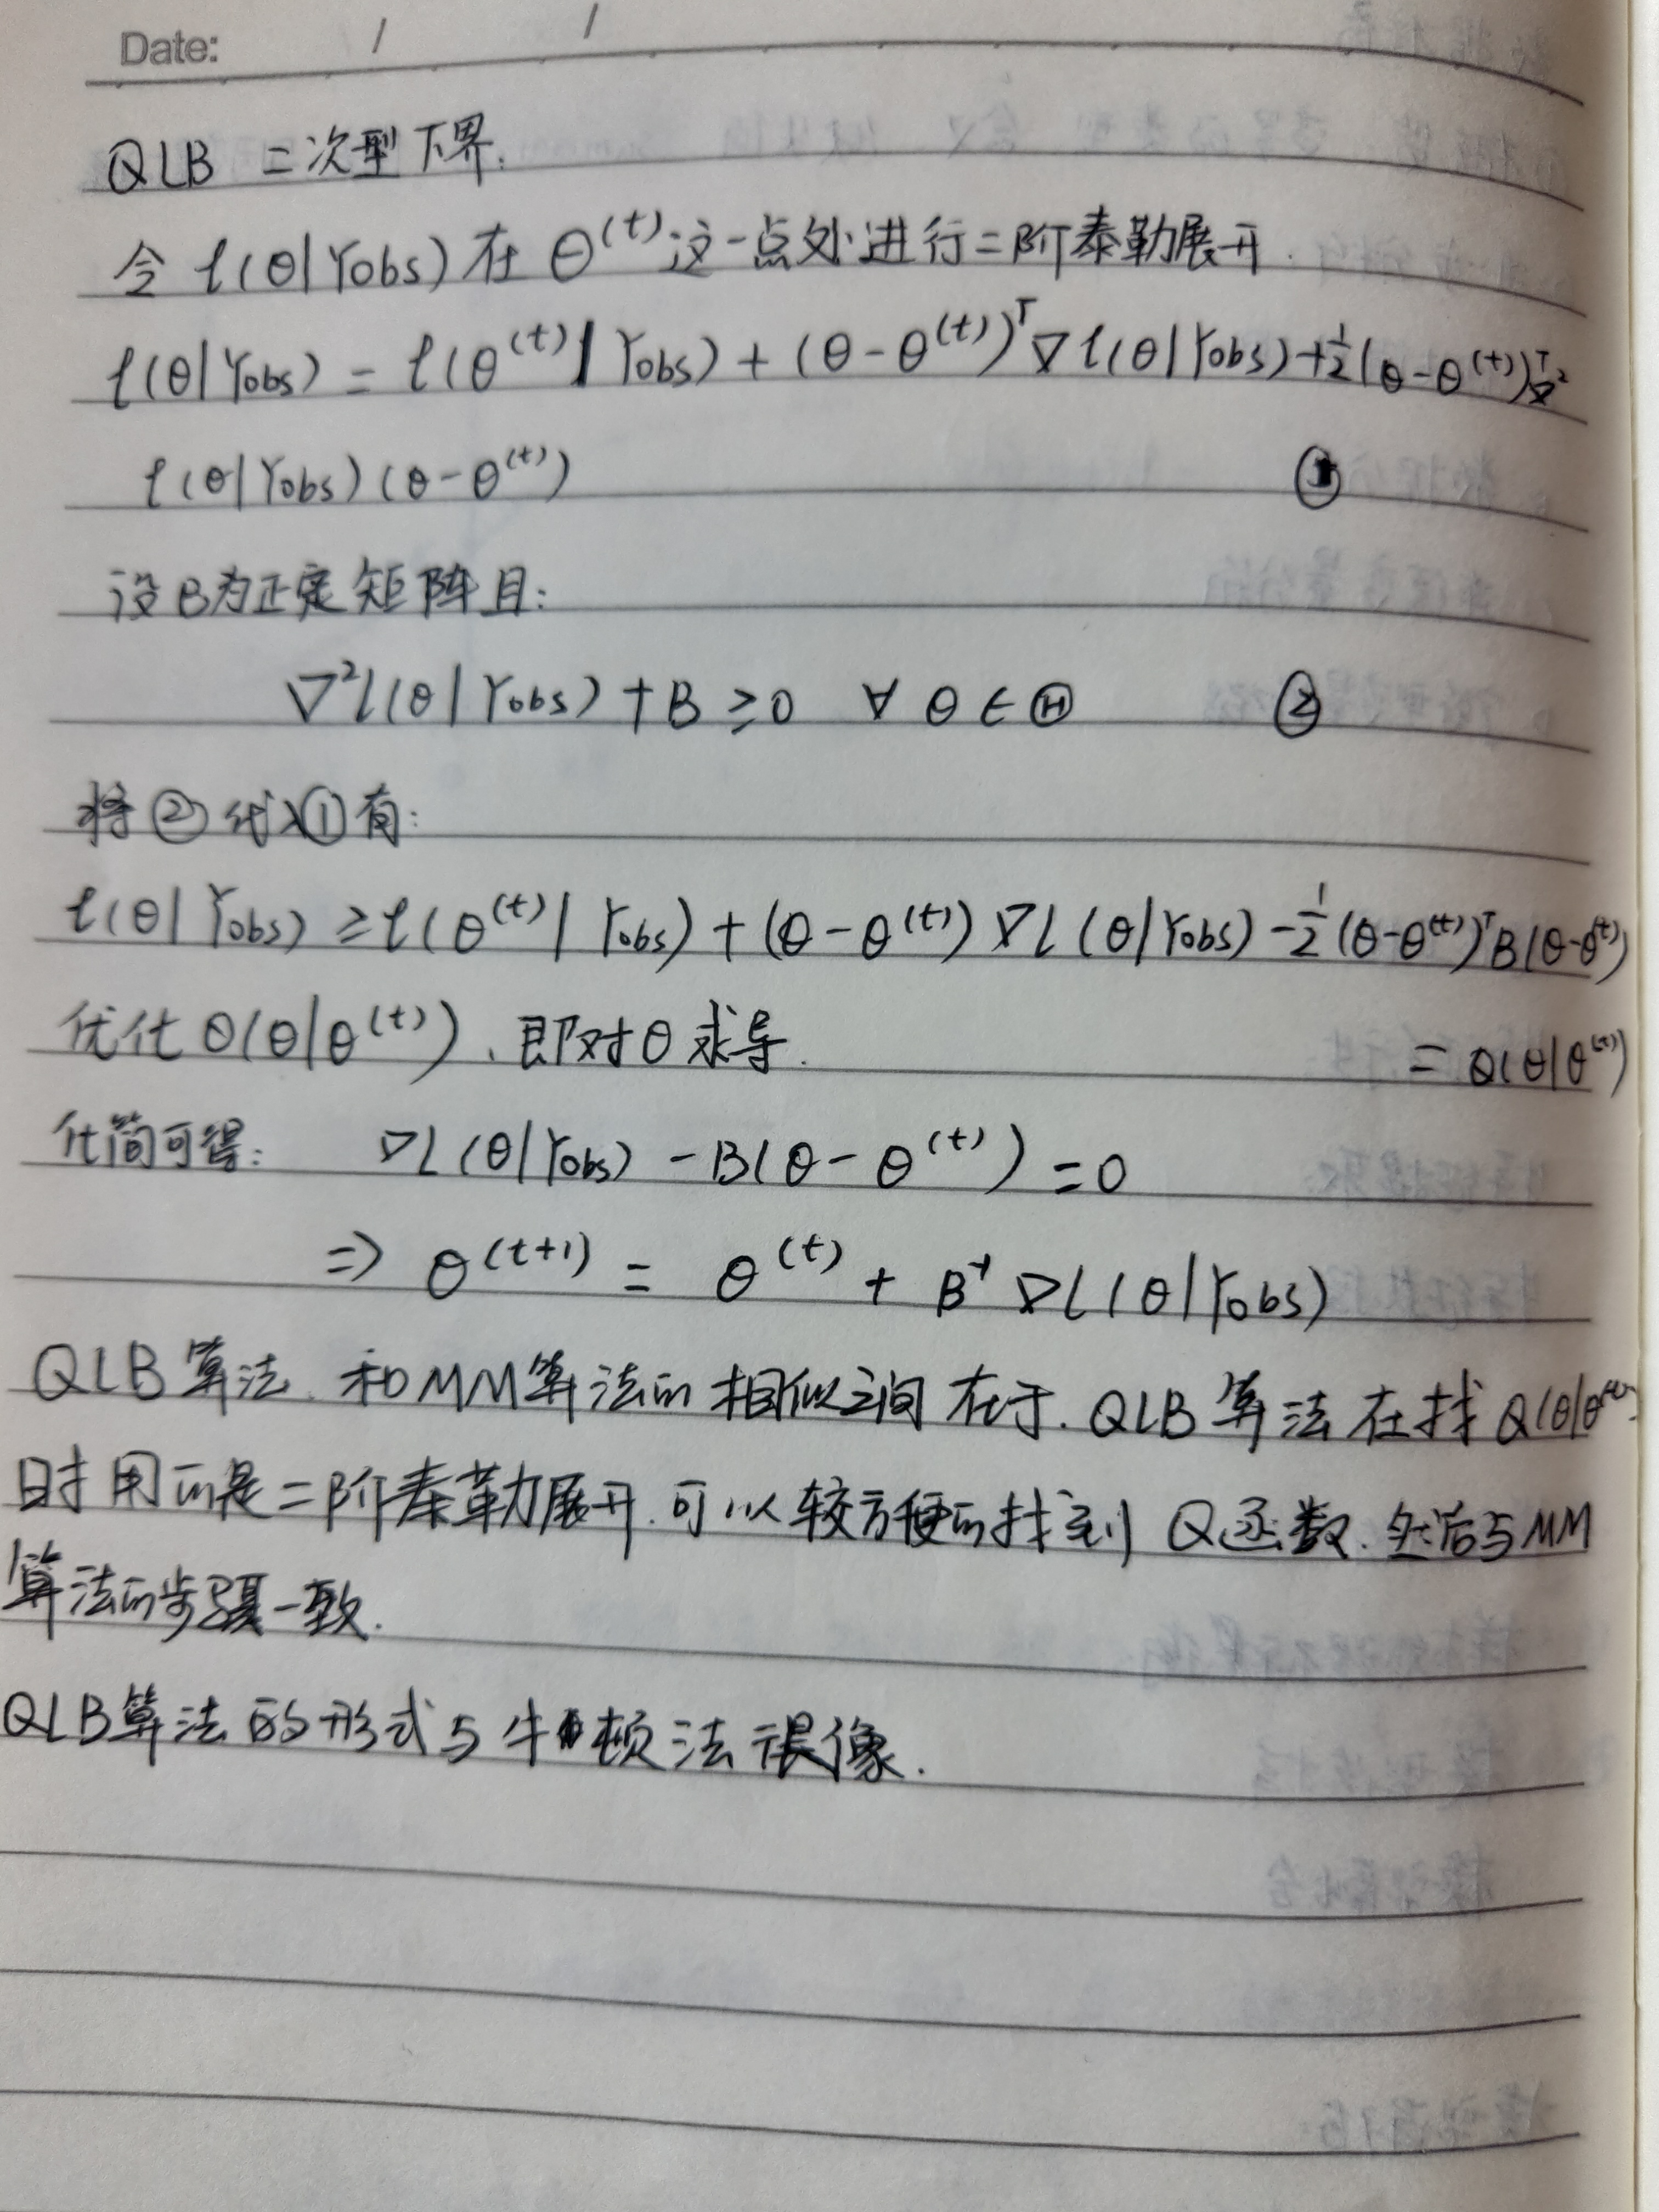 Date: / /
QLB 二次型下界.
令 ℓ(θ|Yobs) 在 θ^(t) 这一点处进行二阶泰勒展开.
ℓ(θ|Yobs) = ℓ(θ^(t)|Yobs) + (θ-θ^(t))^T ∇ℓ(θ|Yobs) + 1/2(θ-θ^(t))^T ∇²
ℓ(θ|Yobs)(θ-θ^(t)) ①
设B为正定矩阵且:
∇²l(θ|Yobs) + B ≥ 0 ∀ θ ∈ Θ ②
将②代入①有:
ℓ(θ|Yobs) ≥ ℓ(θ^(t)|Yobs) + (θ-θ^(t)) ∇l(θ|Yobs) - 1/2(θ-θ^(t))^T B(θ-θ^(t))
= Q(θ|θ^(t))
优化 Q(θ|θ^(t)), 即对θ求导.
化简可得: ∇l(θ|Yobs) - B(θ-θ^(t)) = 0
⇒ θ^(t+1) = θ^(t) + B^-1 ∇l(θ|Yobs)
QLB算法 和MM算法的相似之间在于. QLB算法在找Q(θ|θ^(t))
时用的是二阶泰勒展开. 可以较方便的找到 Q函数. 然后与MM
算法的步骤一致.
QLB算法的形式与牛顿法很像.